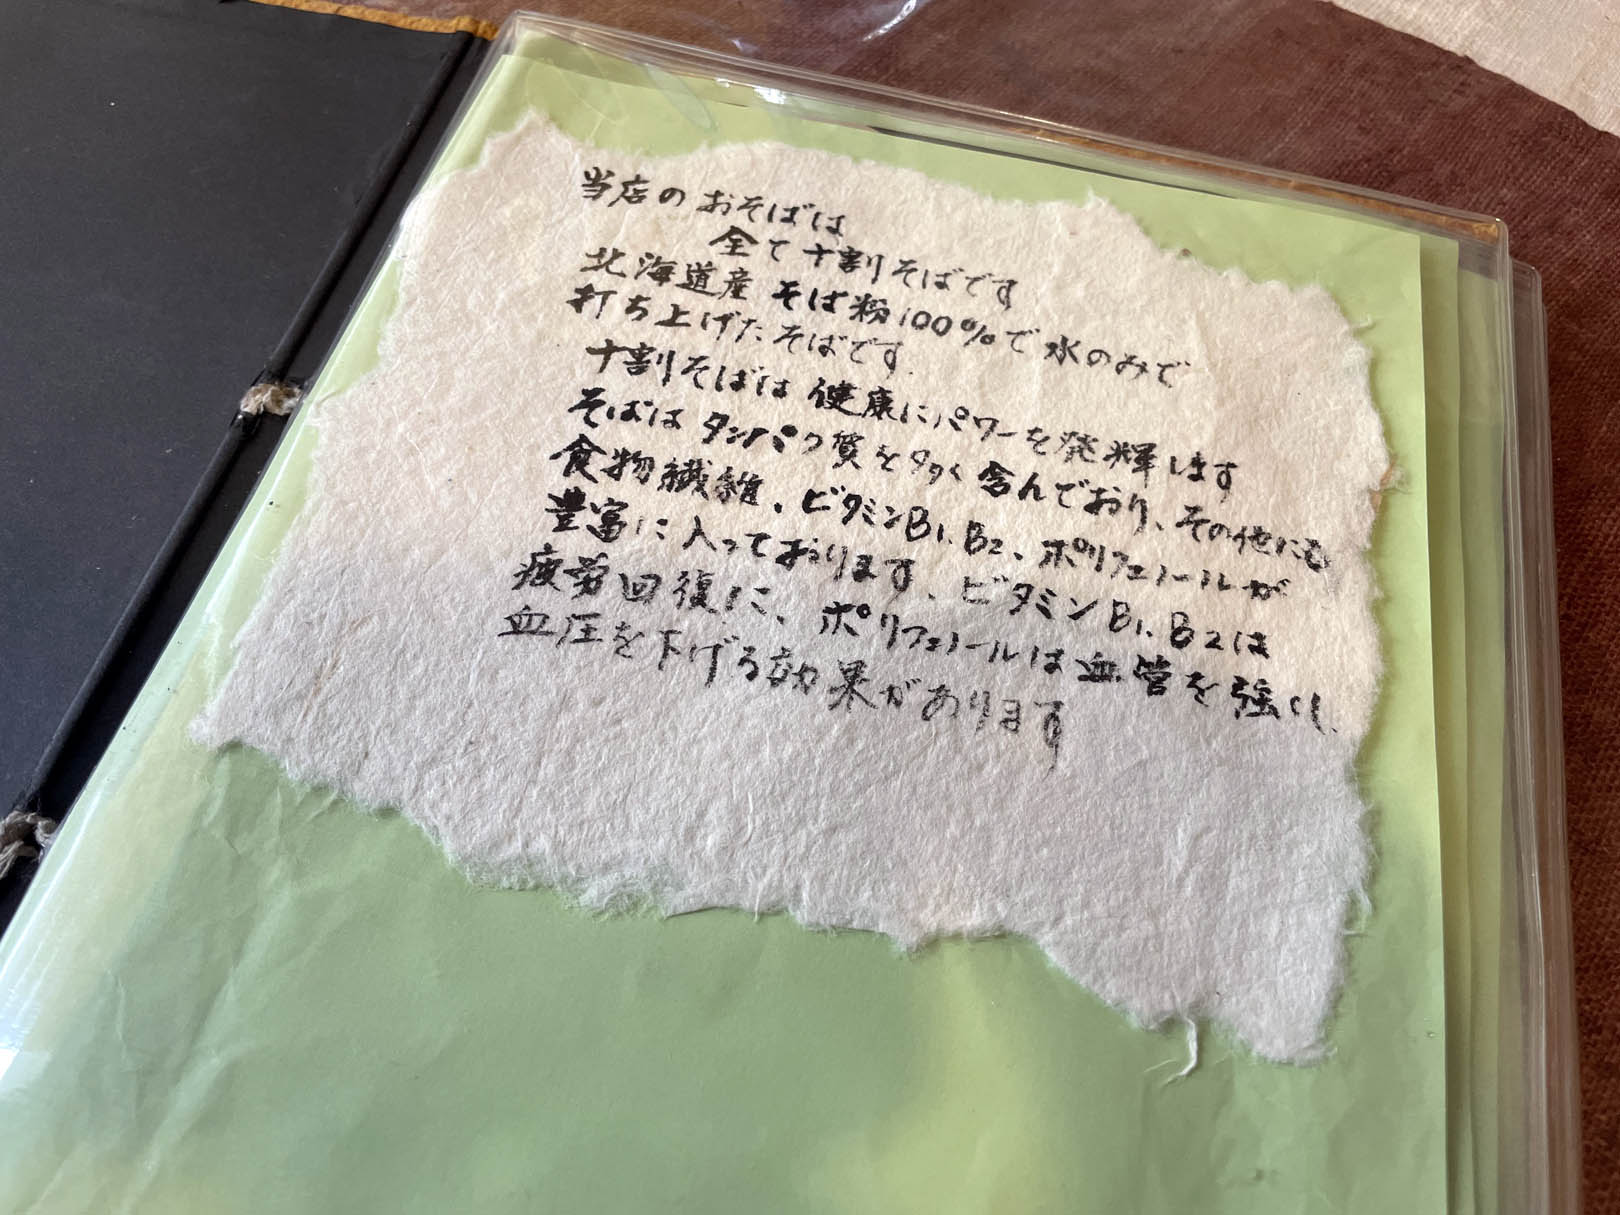 当店のおそばは
全て十割そばです
北海道産そば粉100%で水のみで
打ち上げたそばです.
十割そばは健康にパワーを発揮します
そばはタンパク質を多く含んでおり、その他にも
食物繊維、ビタミンB1、B2、ポリフェノールが
豊富に入っております、ビタミンB1、B2は
疲労回復に、ポリフェノールは血管を強くし、
血圧を下げる効果があります